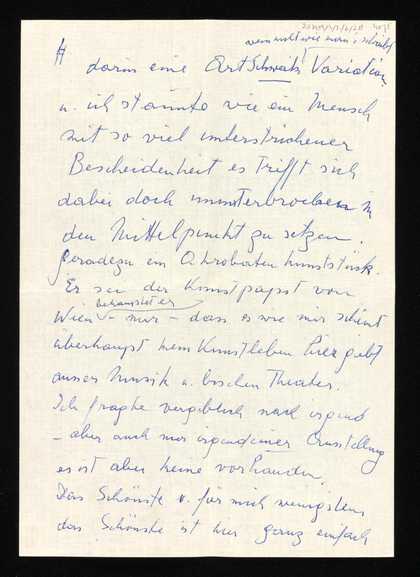 wenn nicht wie man's schreibt
H darin eine Art Schweiks Variation
u. ich staunte wie ein Mensch
mit so viel unterstrichener
Bescheidenheit es trifft sich
dabei doch ununterbrochen in
den Mittelpunkt zu setzen.
Geradezu ein Akrobatenkunststück.
Er sei der Kunstpapst von
versichert er
Wien – nur – dass es wie mir scheint
überhaupt kein Kunstleben hier gibt
ausser Musik u. bischen Theater.
Ich fragte vergeblich nach irgend
– aber auch nur irgendeiner Ausstellung
es ist aber keine vorhanden.
Das Schönste u. für mich wenigstens
das Schönste ist hier ganz einfach